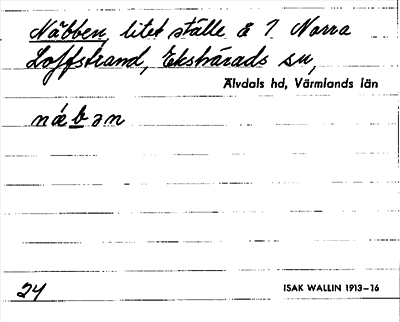 Näbben, litet ställe å 7 Norra
Loffstrand, Ekshärads sn,
Älvdals hd, Värmlands län
näbən
24
ISAK WALLIN 1913–16